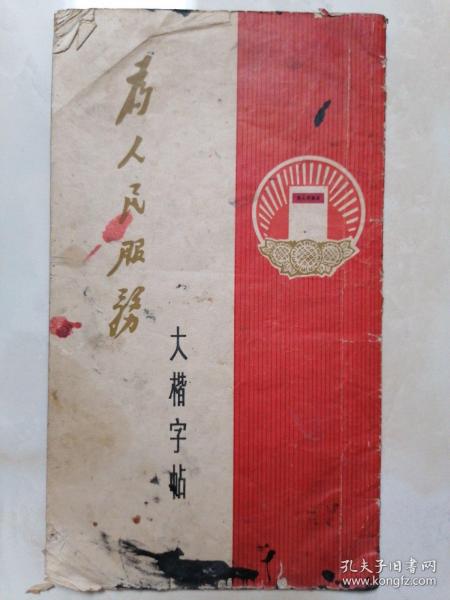 為人民服務
大楷字帖
孔夫子旧书网
www.kongfz.com